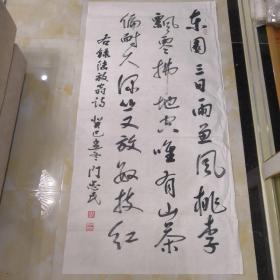 东园三日雨兼风桃李
飘零拂地空唯有山茶
偏耐久绿丛又放数枝红
右录陆放翁诗 癸巳
门忠民